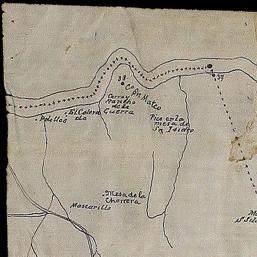 38
Cº Dn Mateo
Cerro
Rancho
de la
Guerra
39
El Colora
do
Potillos
Pico en la
mesa de
Sn Isidro
Mesa de la
Chorrera
Moscarillo